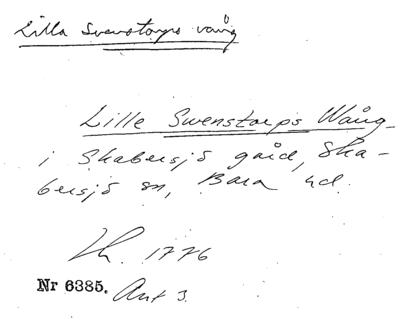 Lilla Svenstorps vång
Lille Swenstorps Wång
i Skabersjö gård, Ska-
bersjö sn, Bara hd.
Lh. 1776
Nr 6385. Ant 3.